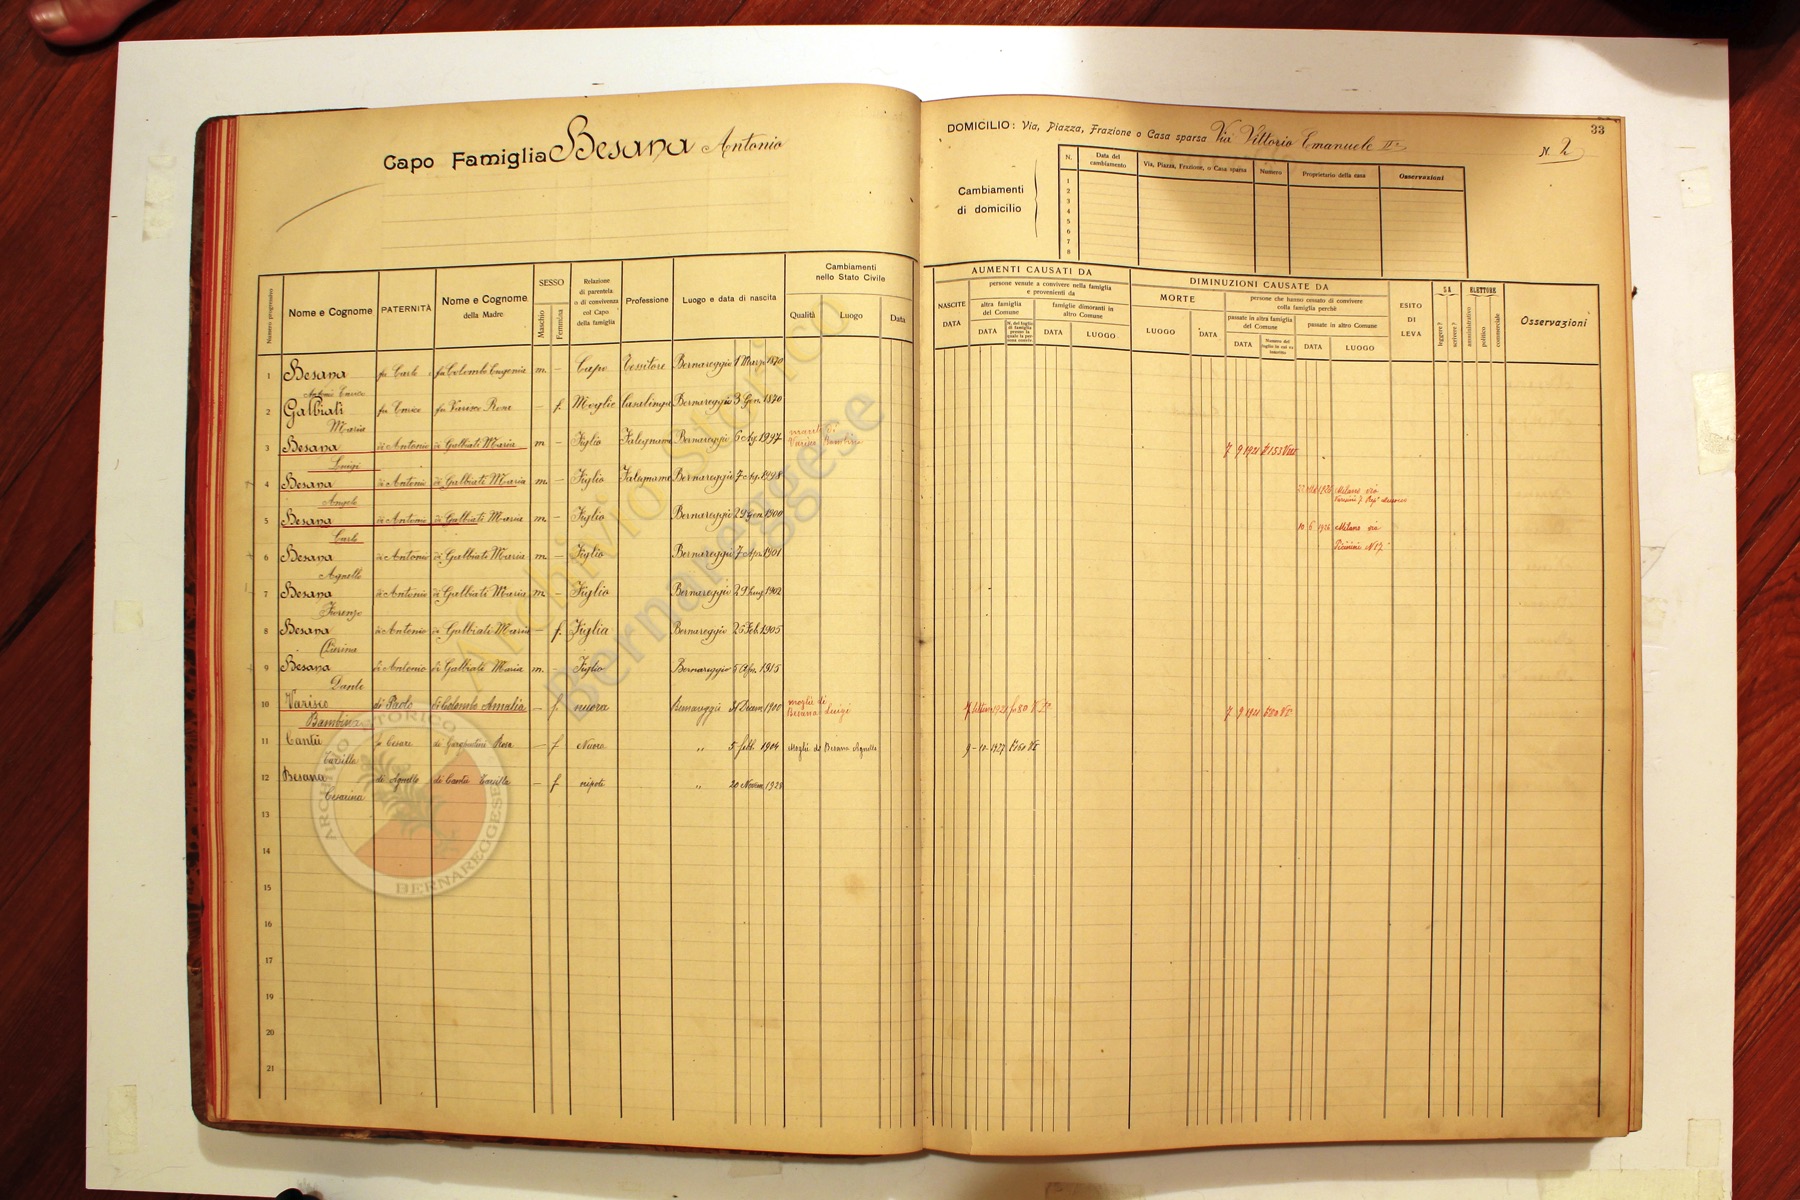 Capo Famiglia Besana Antonio
DOMICILIO: Via, Piazza, Frazione o Casa sparsa Via Vittorio Emanuele II°
33
N. 2
Cambiamenti
di domicilio
N. Data del cambiamento Via, Piazza, Frazione, o Casa sparsa Numero Proprietario della casa Osservazioni
1
2
3
4
5
6
7
8
Numero progressivo
Nome e Cognome
PATERNITÀ
Nome e Cognome della Madre
SESSO
Maschio
Femmina
Relazione di parentela o di convivenza col Capo della famiglia
Professione
Luogo e data di nascita
Cambiamenti nello Stato Civile
Qualità Luogo Data
AUMENTI CAUSATI DA
NASCITE
DATA
persone venute a convivere nella famiglia e provenienti da
altra famiglia del Comune
DATA
famiglie dimoranti in altro Comune
DATA LUOGO
DIMINUZIONI CAUSATE DA
MORTE
LUOGO DATA
persone che hanno cessato di convivere colla famiglia perchè
passate in altra famiglia del Comune
DATA
passate in altro Comune
DATA LUOGO
ESITO DI LEVA
SA
leggere?
scrivere?
ELETTORE
amministrativo
politico
commerciale
Osservazioni
1 Besana fu Carlo fu Colombo Eugenia m. – Capo Tessitore Bernareggio 1 Marzo 1870
Antonio Enrico
2 Galbiati fu Enrico fu Varisco Rosa – f. Moglie Casalinga Bernareggio 3 Gen. 1870
Maria
3 Besana di Antonio di Galbiati Maria m – Figlio Falegname Bernareggio 6 Ag. 1897 marito di Varisco Bambina 7 9 1921 f° 153 VIII
Luigi
4 Besana di Antonio di Galbiati Maria m. – Figlio Falegname Bernareggio 7 Ag. 1898 1926 Milano via
Angelo
5 Besana di Antonio di Galbiati Maria m. – Figlio Bernareggio 29 Gen. 1900 10 6 1926 Milano via
Carlo
6 Besana di Antonio di Galbiati Maria m. – Figlio Bernareggio 7 Ap. 1901
Agnello
7 Besana di Antonio di Galbiati Maria m. – Figlio Bernareggio 29 1902
Fiorenzo
8 Besana di Antonio di Galbiati Maria – f. Figlia Bernareggio 25 Feb. 1905
Pierina
9 Besana di Antonio di Galbiati Maria m. – Figlio Bernareggio 5 1915
Dante
10 Varisco di Paolo di Colombo Amalia – f. nuora Bernareggio 1900 moglie di Besana Luigi 7 Settem 1921 fo 80 7 9 1921 f° 80 VI
Bambina
11 Cantù fu Cesare di Rosa – f Nuora " 5 febb 1904 Moglie di Besana Agnello 9 - 10 - 1927 f° 160 VI
Tarsilla
12 Besana di Agnello di Cantù Tarsilla – f nipote " 20 Novem 1928
Cesarina
13
14
15
16
17
18
19
20
21
Archivio Storico
Bernareggese
ARCHIVIO STORICO BERNAREGGESE